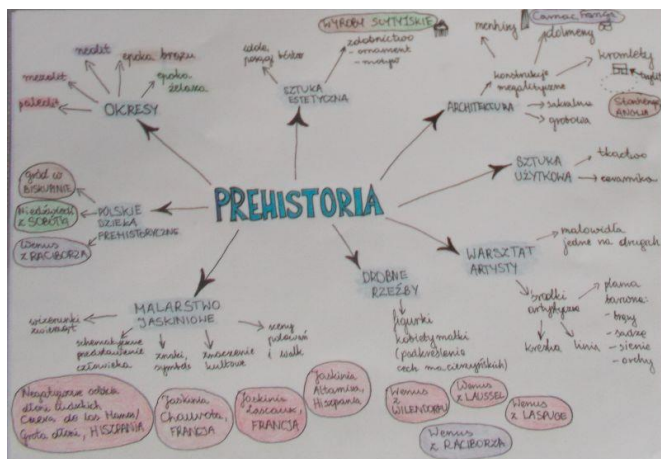 PREHISTORIA
OKRESY
paleolit
mezolit
neolit
epoka brązu
epoka
żelaza
SZTUKA
ESTETYCZNA
WYROBY SCYTYJSKIE
zdobnictwo
- ornament
ARCHITEKTURA
konstrukcje
megalityczne
menhiry
Carnac Francja
dolmeny
kromlechy
Stonehenge
ANGLIA
→ sakralna
→ grobowa
SZTUKA
UŻYTKOWA
tkactwo
ceramika
WARSZTAT
ARTYSTY
malowidła
jedne na drugich
środki
artystyczne
kreska
linia
plama
barwna:
- sadze
- sienie
- ochry
DROBNE
RZEŹBY
figurki
kobiety matki
(podkreślenie
cech macierzyńskich)
Wenus
z WILENDORFU
Wenus
z LAUSSEL
Wenus
z LASPUGE
Wenus
z RACIBORZA
MALARSTWO
JASKINIOWE
wizerunki
zwierząt
schematyczne
przedstawienie
człowieka
znaki,
symbole
sceny
polowań
i walk
Negatywowe odbicia
dłoni ludzkich
Grota dłoni, HISZPANIA
Jaskinia
Chauveta,
FRANCJA
Jaskinia
Lascaux,
FRANCJA
Jaskinia
Altamira,
Hiszpania
POLSKIE
DZIEŁA
PREHISTORYCZNE
gród w
BISKUPINIE
Niedźwiadek
z SOBOTA
Wenus
z RACIBORZA